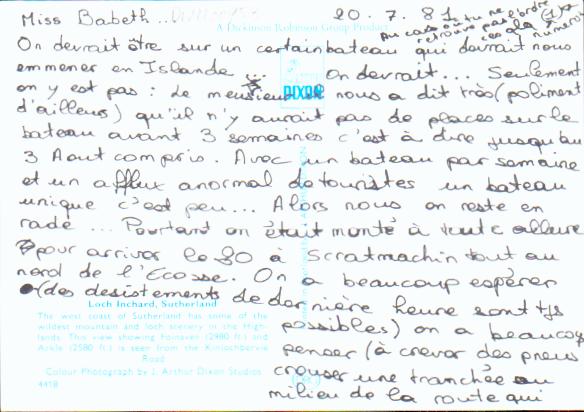 Miss Babeth... 20.7.81
au cas où tu ne
retrouve pas l'ordre
ces à la numéri (1)
A Dickinson Robinson Group Product
On devrait être sur un certain bateau qui devrait nous
emmener en Islande... On devrait... Seulement
on y est pas : le monsieur nous a dit très (poliment
DIXON
d'ailleurs) qu'il n'y aurait pas de places sur le
bateau avant 3 semaines c'est à dire jusqu'au
3 Aout compris. Avec un bateau par semaine
et un afflux anormal de touristes un bateau
unique c'est peu... Alors nous on reste en
rade... Pourtant on était monté à toute allure
pour arriver le 20 à Scratmachin tout au
nord de l'Ecosse. On a beaucoup espérer
(des desistements de dernière heure sont tjs
Loch Inchard, Sutherland
The west coast of Sutherland has some of the
wildest mountain and loch scenery in the High-
lands. This view showing Foinaven (2980 ft.) and
Arkle (2580 ft.) is seen from the Kinlochbervie
Road
Colour Photograph by J. Arthur Dixon Studios
4418
possibles) on a beaucoup
penser (à crever des pneus
creuser une tranchée au
milieu de la route qui